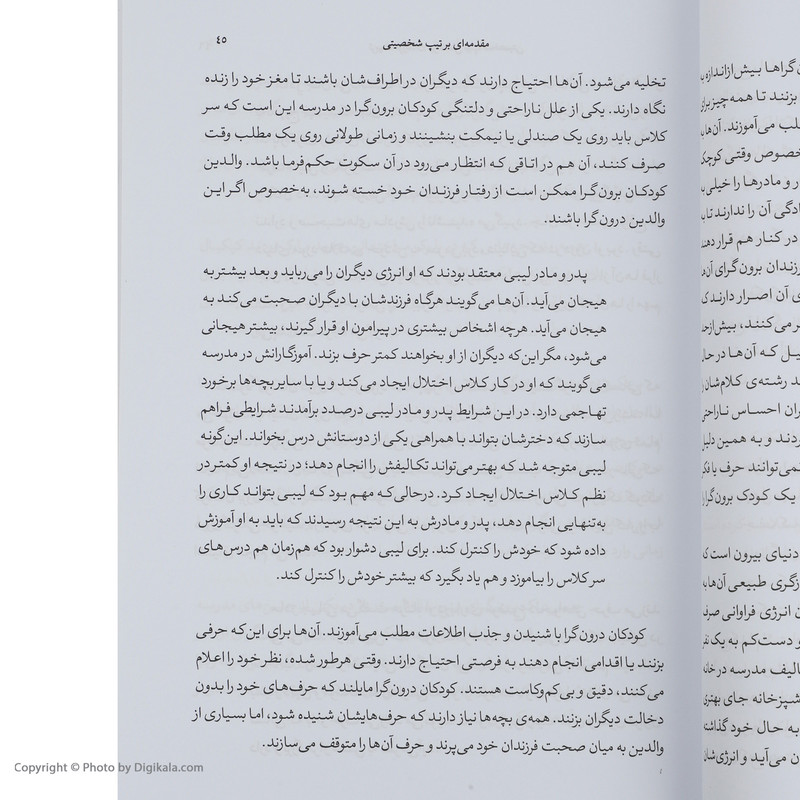 مقدمه‌ای بر تیپ شخصیتی
٤٥
تخلیه می‌شود. آن‌ها احتیاج دارند که دیگران در اطراف‌شان باشند تا مغز خود را زنده
نگاه دارند. یکی از علل ناراحتی و دلتنگی کودکان برون‌گرا در مدرسه این است که سر
کلاس باید روی یک صندلی یا نیمکت بنشینند و زمانی طولانی روی یک مطلب وقت
صرف کنند، آن هم در اتاقی که انتظار می‌رود در آن سکوت حکم‌فرما باشد. والدین
کودکان برون‌گرا ممکن است از رفتار فرزندان خود خسته شوند، به‌خصوص اگر این
والدین درون‌گرا باشند.
پدر و مادر لیبی معتقد بودند که او انرژی دیگران را می‌رباید و بعد بیشتر به
هیجان می‌آید. آن‌ها می‌گویند هرگاه فرزندشان با دیگران صحبت می‌کند به
هیجان می‌آید. هرچه اشخاص بیشتری در پیرامون او قرار گیرند، بیشتر هیجانی
می‌شود، مگر این‌که دیگران از او بخواهند کمتر حرف بزند. آموزگارانش در مدرسه
می‌گویند که او در کار کلاس اختلال ایجاد می‌کند و یا با سایر بچه‌ها برخورد
تهاجمی دارد. در این شرایط پدر و مادر لیبی درصدد برآمدند شرایطی فراهم
سازند که دخترشان بتواند با همراهی یکی از دوستانش درس بخواند. این‌گونه
لیبی متوجه شد که بهتر می‌تواند تکالیفش را انجام دهد؛ در نتیجه او کمتر در
نظم کلاس اختلال ایجاد کرد. درحالی‌که مهم بود که لیبی بتواند کاری را
به‌تنهایی انجام دهد، پدر و مادرش به این نتیجه رسیدند که باید به او آموزش
داده شود که خودش را کنترل کند. برای لیبی دشوار بود که هم‌زمان هم درس‌های
سر کلاس را بیاموزد و هم یاد بگیرد که بیشتر خودش را کنترل کند.
کودکان درون‌گرا با شنیدن و جذب اطلاعات مطلب می‌آموزند. آن‌ها برای این‌که حرفی
بزنند یا اقدامی انجام دهند به فرصتی احتیاج دارند. وقتی هرطور شده، نظر خود را اعلام
می‌کنند، دقیق و بی‌کم‌وکاست هستند. کودکان درون‌گرا مایلند که حرف‌های خود را بدون
دخالت دیگران بزنند. همه‌ی بچه‌ها نیاز دارند که حرف‌هایشان شنیده شود، اما بسیاری از
والدین به میان صحبت فرزندان خود می‌پرند و حرف آن‌ها را متوقف می‌سازند.
Copyright © Photo by Digikala.com